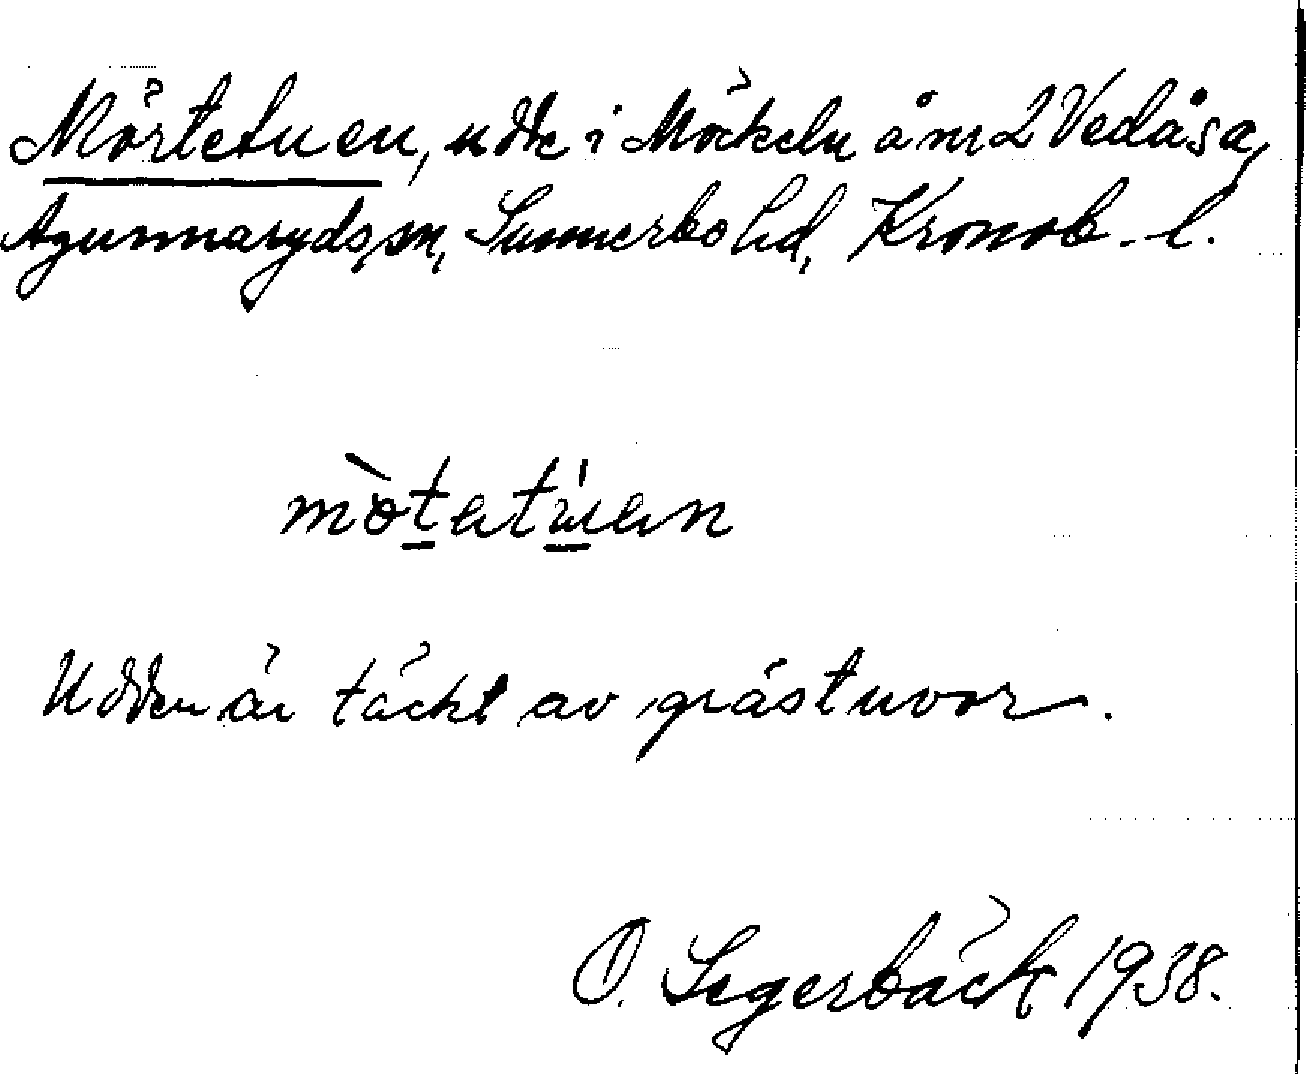 Mörtetuen, udde i Möckeln å nr 2 Vedåsa,
Agunnaryds sn, Sunnerbo hd, Kronob. l.
mòtatúan
Udden är täckt av grästuvor.
O. Segerbäck 1938.